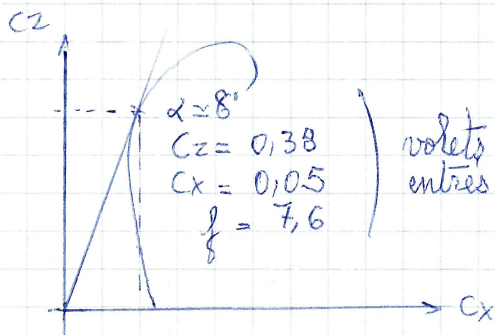 Cz
α ≃ 8°
Cz = 0,38
Cx = 0,05
f = 7,6
volets
entrés
Cx